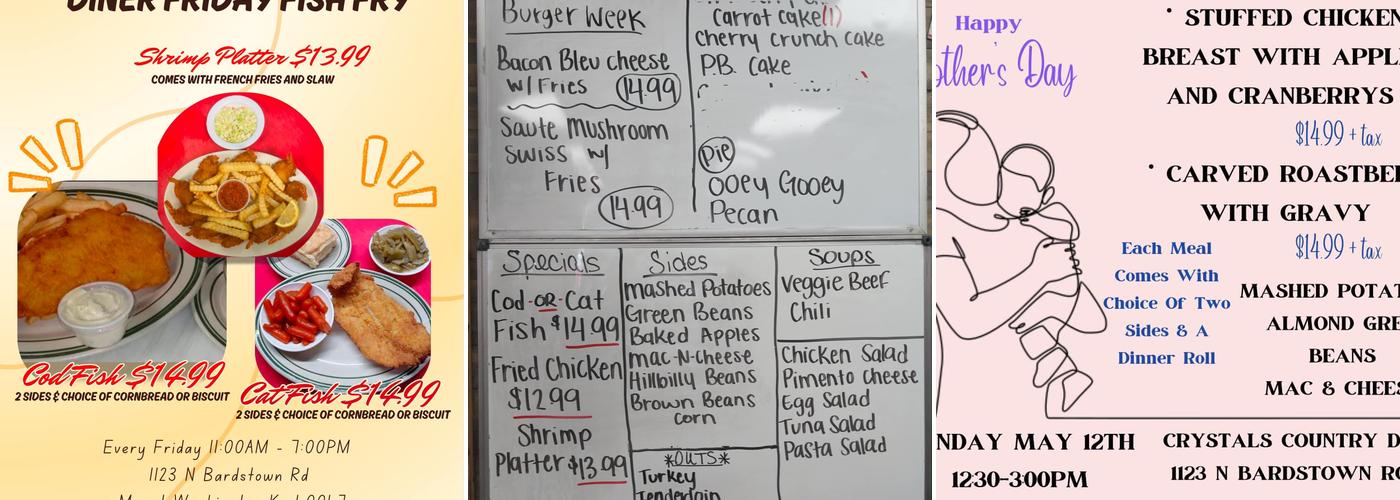 DINER FRIDAY FISH FRY
Shrimp Platter $13.99
COMES WITH FRENCH FRIES AND SLAW
Cod Fish $14.99
2 SIDES & CHOICE OF CORNBREAD OR BISCUIT
Cat Fish $14.99
2 SIDES & CHOICE OF CORNBREAD OR BISCUIT
Every Friday 11:00AM - 7:00PM
1123 N Bardstown Rd
Burger Week
Bacon Bleu cheese
w/ Fries 14.99
Saute Mushroom
Swiss w/
Fries
14.99
Carrot Cake (1)
Cherry Crunch Cake
P.B. Cake
Pie
Ooey Gooey
Pecan
Specials
Cod -OR- Cat
Fish $14.99
Fried Chicken
$12.99
Shrimp
Platter $13.99
Sides
Mashed Potatoes
Green Beans
Baked Apples
Mac-N-cheese
Hillbilly Beans
Brown Beans
Corn
*OUTS*
Turkey
Tenderloin
Soups
Veggie Beef
Chili
Chicken Salad
Pimento Cheese
Egg Salad
Tuna Salad
Pasta Salad
Happy
other's Day
• STUFFED CHICKEN
BREAST WITH APPL
AND CRANBERRYS
$14.99 + tax
• CARVED ROASTBEE
WITH GRAVY
$14.99 + tax
Each Meal
Comes With
Choice Of Two
Sides & A
Dinner Roll
MASHED POTAT
ALMOND GRE
BEANS
MAC & CHEES
NDAY MAY 12TH
1230-3:00PM
CRYSTALS COUNTRY D
1123 N BARDSTOWN R